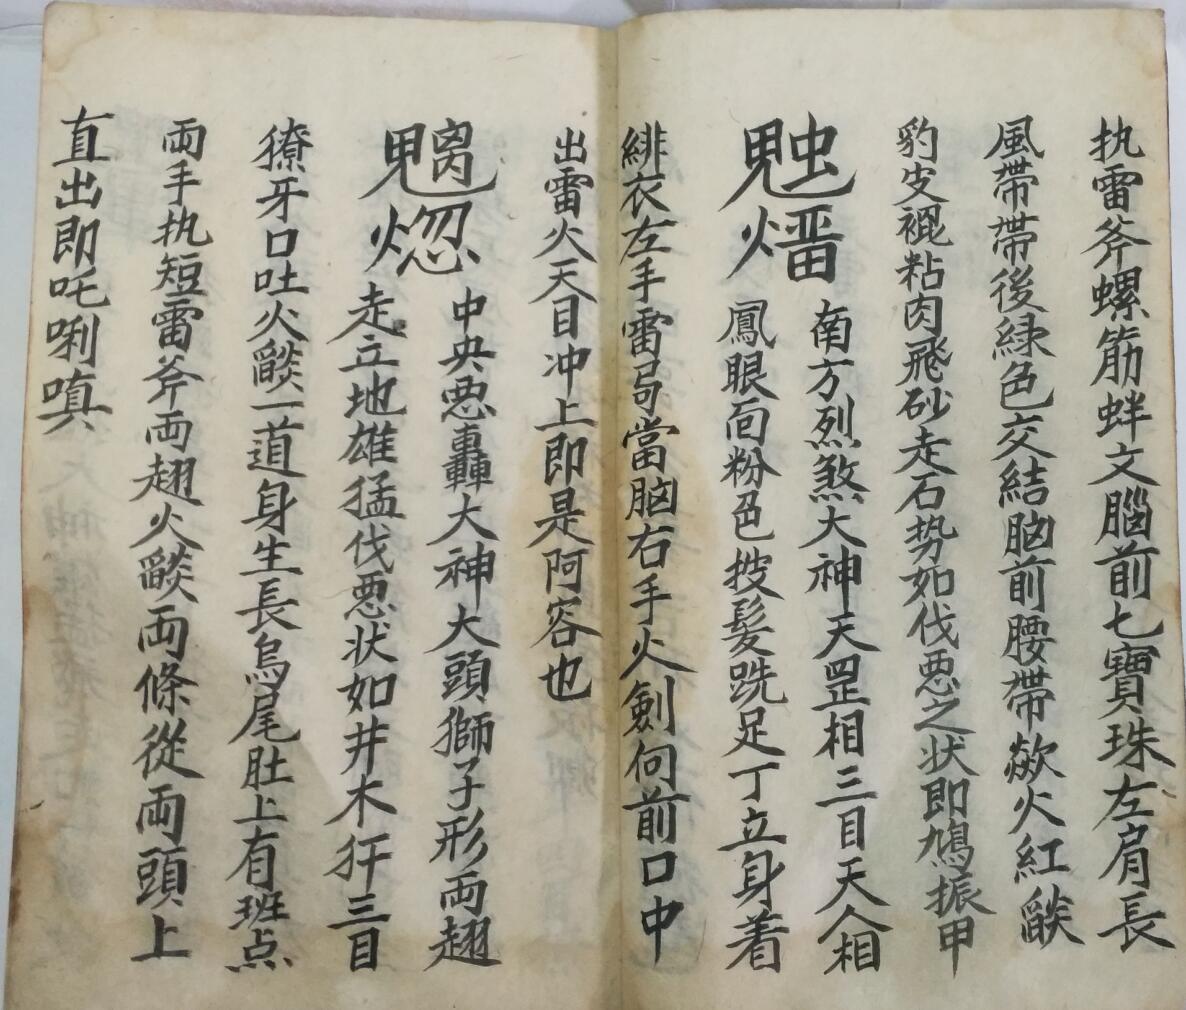 执雷斧螺筋蚌文腦前七寶珠左肩長
風帶帶後緑色交結脑前腰帶歘火紅燄
豹皮裩粘肉飛砂走石势如伐恶之状即鳩振甲
南方烈煞大神天罡相三目天人相
鳳眼面粉色披髮跣足丁立身着
緋衣左手雷弓當脑右手火劍向前口中
出雷火天目冲上即是阿容也
中央恶轟大神大頭獅子形両翅
走立地雄猛伐恶状如井木犴三目
獠牙口吐火燄一道身生長鳥尾肚上有班点
両手执短雷斧両翅火燄両條從両頭上
直出即吒唎嗔